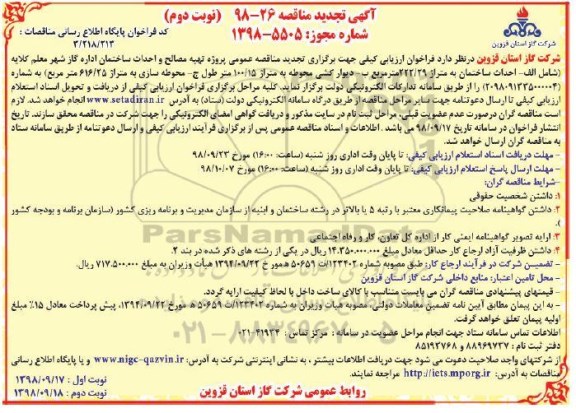 آگهی تجدید مناقصه ۲۶-۹۸ (نوبت دوم)
شماره مجوز: ۵۵۰۵-۱۳۹۸
کد فراخوان پایگاه اطلاع رسانی مناقصات :
۳/۲۱۸/۳۱۳
شرکت گاز استان قزوین
شرکت گاز استان قزوین در نظر دارد فراخوان ارزیابی کیفی جهت برگزاری تجدید مناقصه عمومی پروژه تهیه مصالح و احداث ساختمان اداره گاز شهر معلم کلایه
(شامل الف- احداث ساختمان به متراژ ۲۲۲/۲۹مترمربع ب- دیوار کشی محوطه به متراژ ۱۰۰/۱۵ متر طول ج- محوطه سازی به متراژ ۶۱۶/۲۵ متر مربع) به شماره
(۲۰۹۸۰۹۱۲۳۵۰۰۰۰۰۴) را از طریق سامانه تدارکات الکترونیکی دولت برگزار نماید. کلیه مراحل برگزاری فراخوان ارزیابی کیفی از دریافت و تحویل اسناد استعلام
ارزیابی کیفی تا ارسال دعوتنامه جهت سایر مراحل مناقصه از طریق درگاه سامانه الکترونیکی دولت (ستاد) به آدرس www.setadiran.ir انجام خواهد شد. لازم
است مناقصه گران درصورت عدم عضویت قبلی، مراحل ثبت نام در سایت مذکور و دریافت گواهی امضای الکترونیکی را جهت شرکت در مناقصه محقق سازند. تاریخ
انتشار فراخوان در سامانه تاریخ ۹۸/۰۹/۱۷ می باشد. اطلاعات و اسناد مناقصه عمومی پس از برگزاری فرآیند ارزیابی کیفی و ارسال دعوتنامه از طریق سامانه ستاد
به مناقصه گران ارسال خواهد شد.
- مهلت دریافت اسناد استعلام ارزیابی کیفی: تا پایان وقت اداری روز شنبه (ساعت: ۱۶:۰۰) مورخ ۹۸/۰۹/۲۳
- مهلت ارسال پاسخ استعلام ارزیابی کیفی: تا پایان وقت اداری روز شنبه (ساعت: ۱۶:۰۰) مورخ ۹۸/۱۰/۰۷
-شرایط مناقصه گران:
۱. داشتن شخصیت حقوقی
۲. داشتن گواهینامه صلاحیت پیمانکاری معتبر با رتبه ۵ یا بالاتر در رشته ساختمان و ابنیه از سازمان مدیریت و برنامه ریزی کشور (سازمان برنامه و بودجه کشور
)
۳. ارایه تصویر گواهینامه ایمنی کار از اداره کل تعاون، کار و رفاه اجتماعی
۴. داشتن ظرفیت آزاد ارجاع کار حداقل معادل مبلغ ۱۴.۳۵۰.۰۰۰.۰۰۰ ریال در یکی از رشته های ذکر شده در بند ۲.
- تضمین شرکت در فرآیند ارجاع کار: طبق مصوبه شماره ۱۲۳۴۰۲/ت۵۰۶۵۹ ه مورخ ۱۳۹۴/۰۹/۲۲ هیأت وزیران به مبلغ ۷۱۷.۵۰۰.۰۰۰ ریال
- محل تامین اعتبار: منابع داخلی شرکت گاز استان قزوین
- قیمتهای پیشنهادی مناقصه گران می بایست متناسب با کالای ساخت داخل با لحاظ کیفیت ارایه گردد.
- به این پیمان مطابق آیین نامه تضمین معاملات دولتی، مصوبه هیأت وزیران به شماره ۱۲۳۴۰۲/ت۵۰۶۵۹ه مورخ ۱۳۹۴/۰۹/۲۲، پیش پرداخت معادل ۱۵٪ مبلغ
اولیه پیمان تعلق خواهد گرفت.
اطلاعات تماس سامانه ستاد جهت انجام مراحل عضویت در سامانه : مرکز تماس : ۴۱۹۳۴-۰۲۱
دفتر ثبت نام : ۸۸۹۶۹۷۳۷ و ۸۵۱۹۳۷۶۸
از شرکتهای واجد صلاحیت دعوت می شود جهت دریافت اطلاعات بیشتر ، به نشانی اینترنتی شرکت به آدرس: www.nigc-qazvin.ir و یا پایگاه اطلاع رسانی
مناقصات به آدرس: http://iets.mporg.ir مراجعه نمایند.
نوبت اول : ۱۳۹۸/۰۹/۱۷
نوبت دوم : ۱۳۹۸/۰۹/۱۸
روابط عمومی شرکت گاز استان قزوین
ParsNamadData
۰۲۱-۸۸۳۴۹۶۷۰-۵